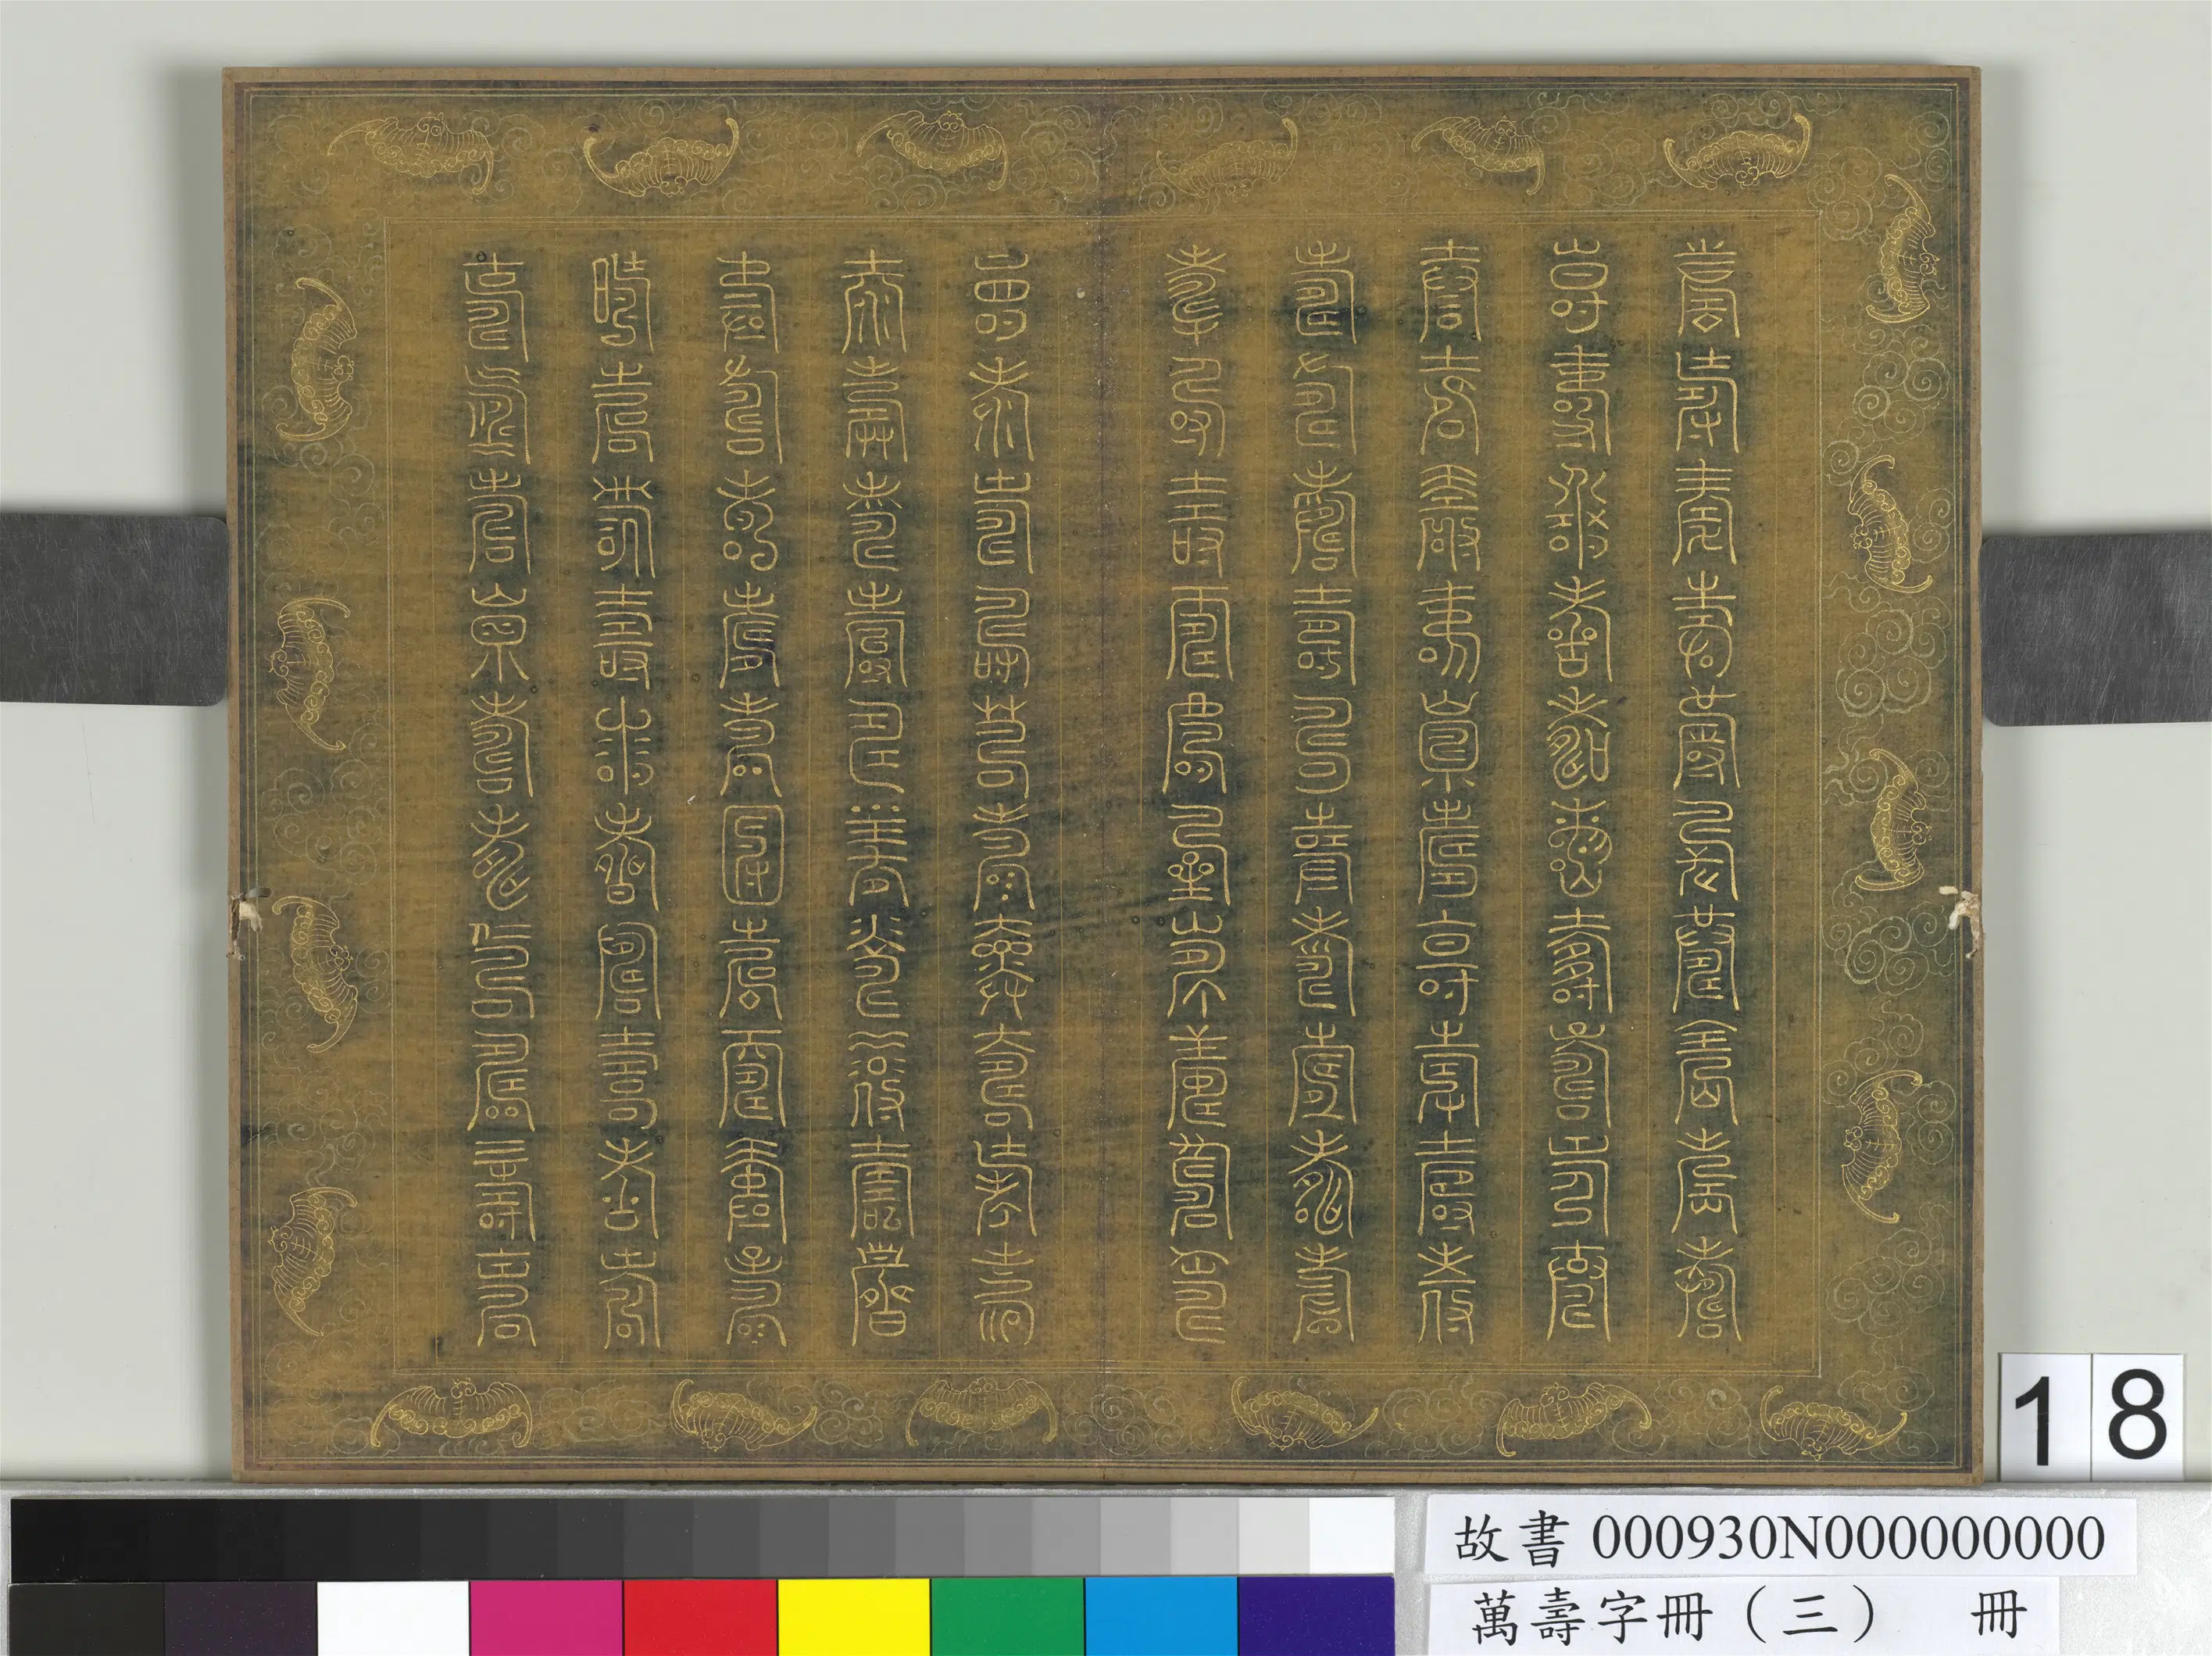 壽壽壽壽壽壽壽壽壽壽
壽壽壽壽壽壽壽壽壽壽
壽壽壽壽壽壽壽壽壽壽
壽壽壽壽壽壽壽壽壽壽
壽壽壽壽壽壽壽壽壽壽
壽壽壽壽壽壽壽壽壽壽
壽壽壽壽壽壽壽壽壽壽
壽壽壽壽壽壽壽壽壽壽
壽壽壽壽壽壽壽壽壽壽
壽壽壽壽壽壽壽壽壽壽
18
故書 000930N000000000
萬壽字冊（三） 冊